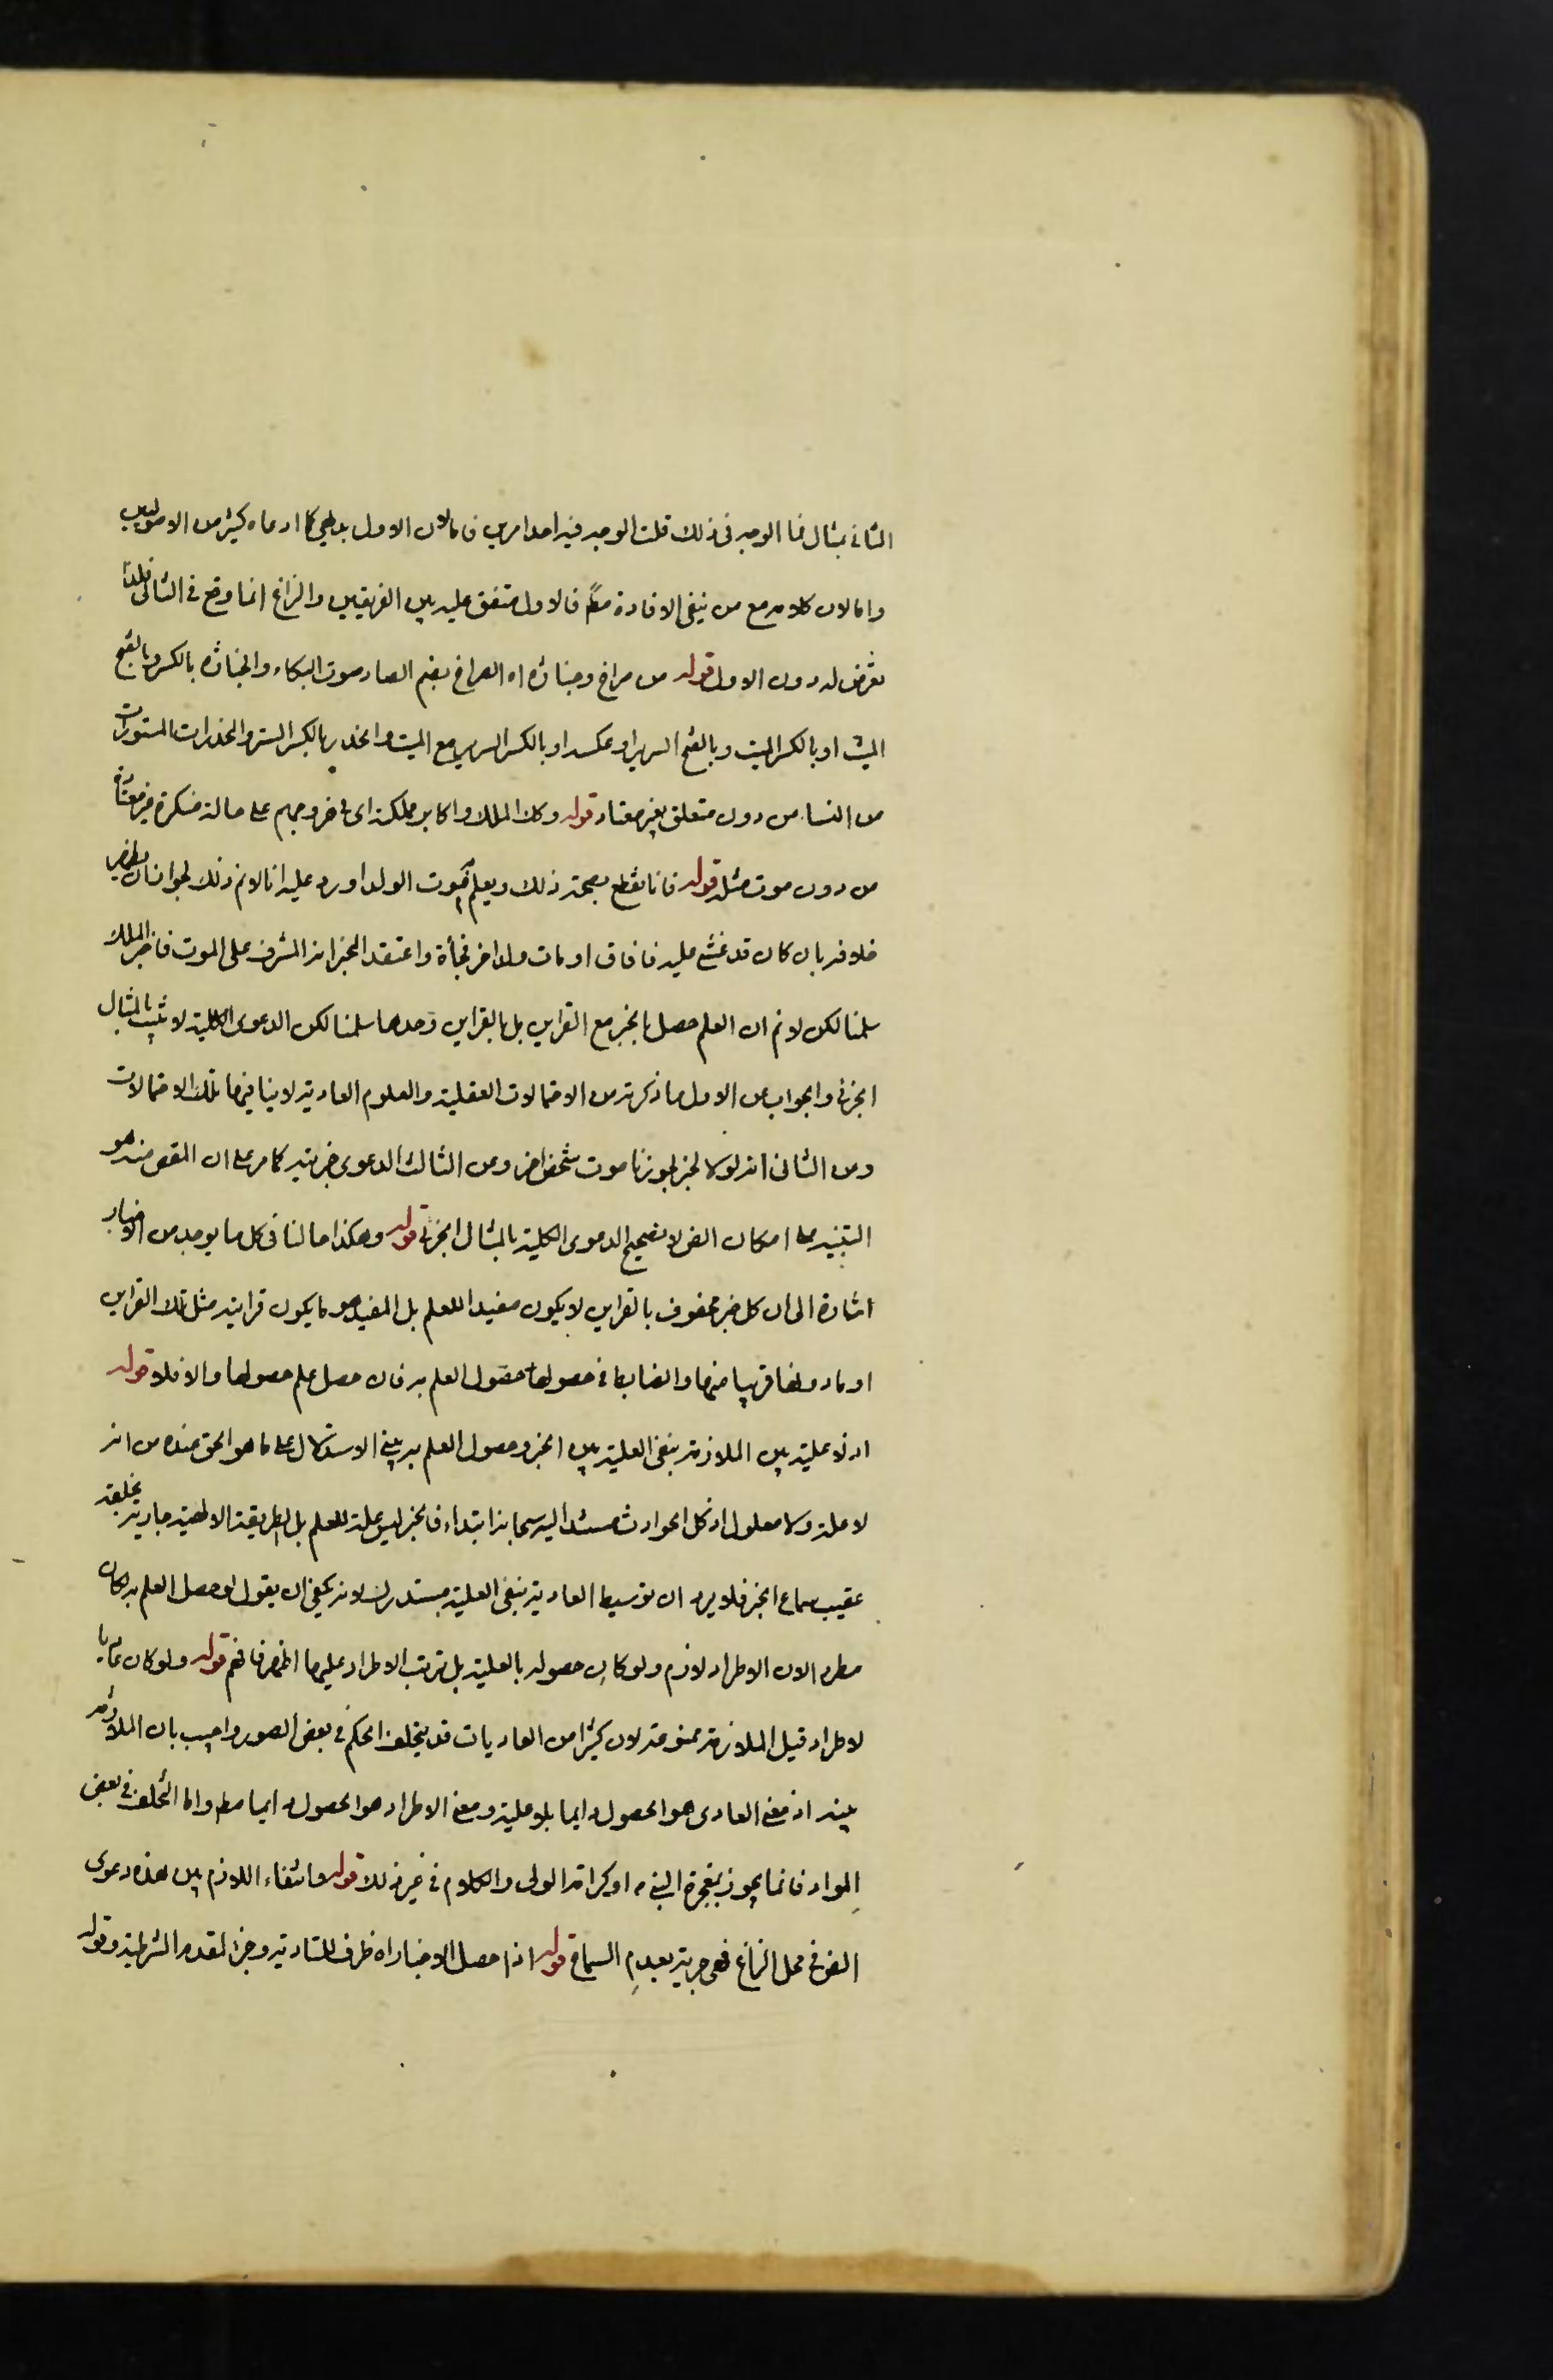 الثانى بمثال فما الوجه فى ذلك قلت الوجه فيه احد امرين فاما لان الاول بديهى كما ادعاه كثير من الاصوليين
واما لان كلامه مع من ينفى الافادة مطم فالاول متفق عليه بين الفريقين والنزاع انما وقع فى الثانى فلذا
تعرض له دون الاول قوله من صراخ وجنازة اه الصراخ بضم الصاد صوت البكاء والجنازة بالكسر وبالفتح
الميت او بالكسر الميت وبالفتح السرير او عكسه او بالكسر السرير مع الميت والخدر بالكسر الستر والمخدرات المستورات
من النساء من دون متعلق بغير معتاد قوله وكذا الملك واكابر مملكته اى فى خروجهم على حالة منكرة غير معتادة
من دون موت مثله قوله فانا نقطع بصحة ذلك ويعلم به موت الولد اورد عليه انا لا نم ذلك لجواز ان يظهر
خلافه بان كان قد غشى عليه فافاق او مات ولد اخر فجأة واعتقد المخبر انه المشرف على الموت فاخبر الملك
سلمنا لكن لا نم ان العلم حصل بالخبر مع القراين بل بالقراين وحدها سلمنا لكن الدعوى الكلية لا تثبت بالمثال
الجزئى والجواب عن الاول ما ذكرته من الاحتمالات العقلية والعلوم العادية لا ينافيها تلك الاحتمالات
وعن الثانى انه لولا الخبر لجوزنا موت شخص اخر وعن الثالث الدعوى جزئية كما مر على ان المقص منه هو
التنبيه على امكان الفرض لا تصحيح الدعوى الكلية بالمثال الجزئى قوله وهكذا حالنا فى كل ما يوجد من الاخبار
اشارة الى ان كل خبر محفوف بالقراين لا يكون مفيدا للعلم بل المفيد هو ما يكون قراينه مثل تلك القراين
او ما دونها قريبا منها والضابط فى حصولها حصول العلم به فان حصل علم حصولها والا فلا قوله
اذ لا علية بين الملازمة بنفى العلية بين الخبر وحصول العلم به يبنى الاستدلال على ما هو الحق عنده من انه
لا علة ولا معلول اذ كل الحوادث مستند اليه سبحانه ابتداء فالخبر ليس علة للعلم بل الطريقة الالهية جارية بخلقه
عقيب سماع الخبر فلا يرد ان توسيط العادية بنفى العلية مستدرك لانه يكفى ان يقول لو حصل العلم به لكان
مطردا لان الاطراد لازم ولو كان حصوله بالعلية بل ترتب الاطراد عليها اظهر فافهم قوله ولو كان عاديا
لاطرد قيل الملازمة ممنوعة لان كثيرا من العاديات قد يتخلف الحكم فى بعض الصور واجيب بان الملازمة
بينه اذ معنى العادى هو الحصول دايما بلا علية ومعنى الاطراد هو الحصول دايما مطم واما التخلف فى بعض
المواد فانما يجوز بمعجزة النبى ص او كرامة الولى والكلام فى غيره للا قوله وانتفاء اللازم بين هذه دعوى
الفرض فى محل النزاع فهى حرية بعدم السماع قوله اذا حصل الاخبار اه ظرف للتادية وخبر لمقدم الشرطية وقوله